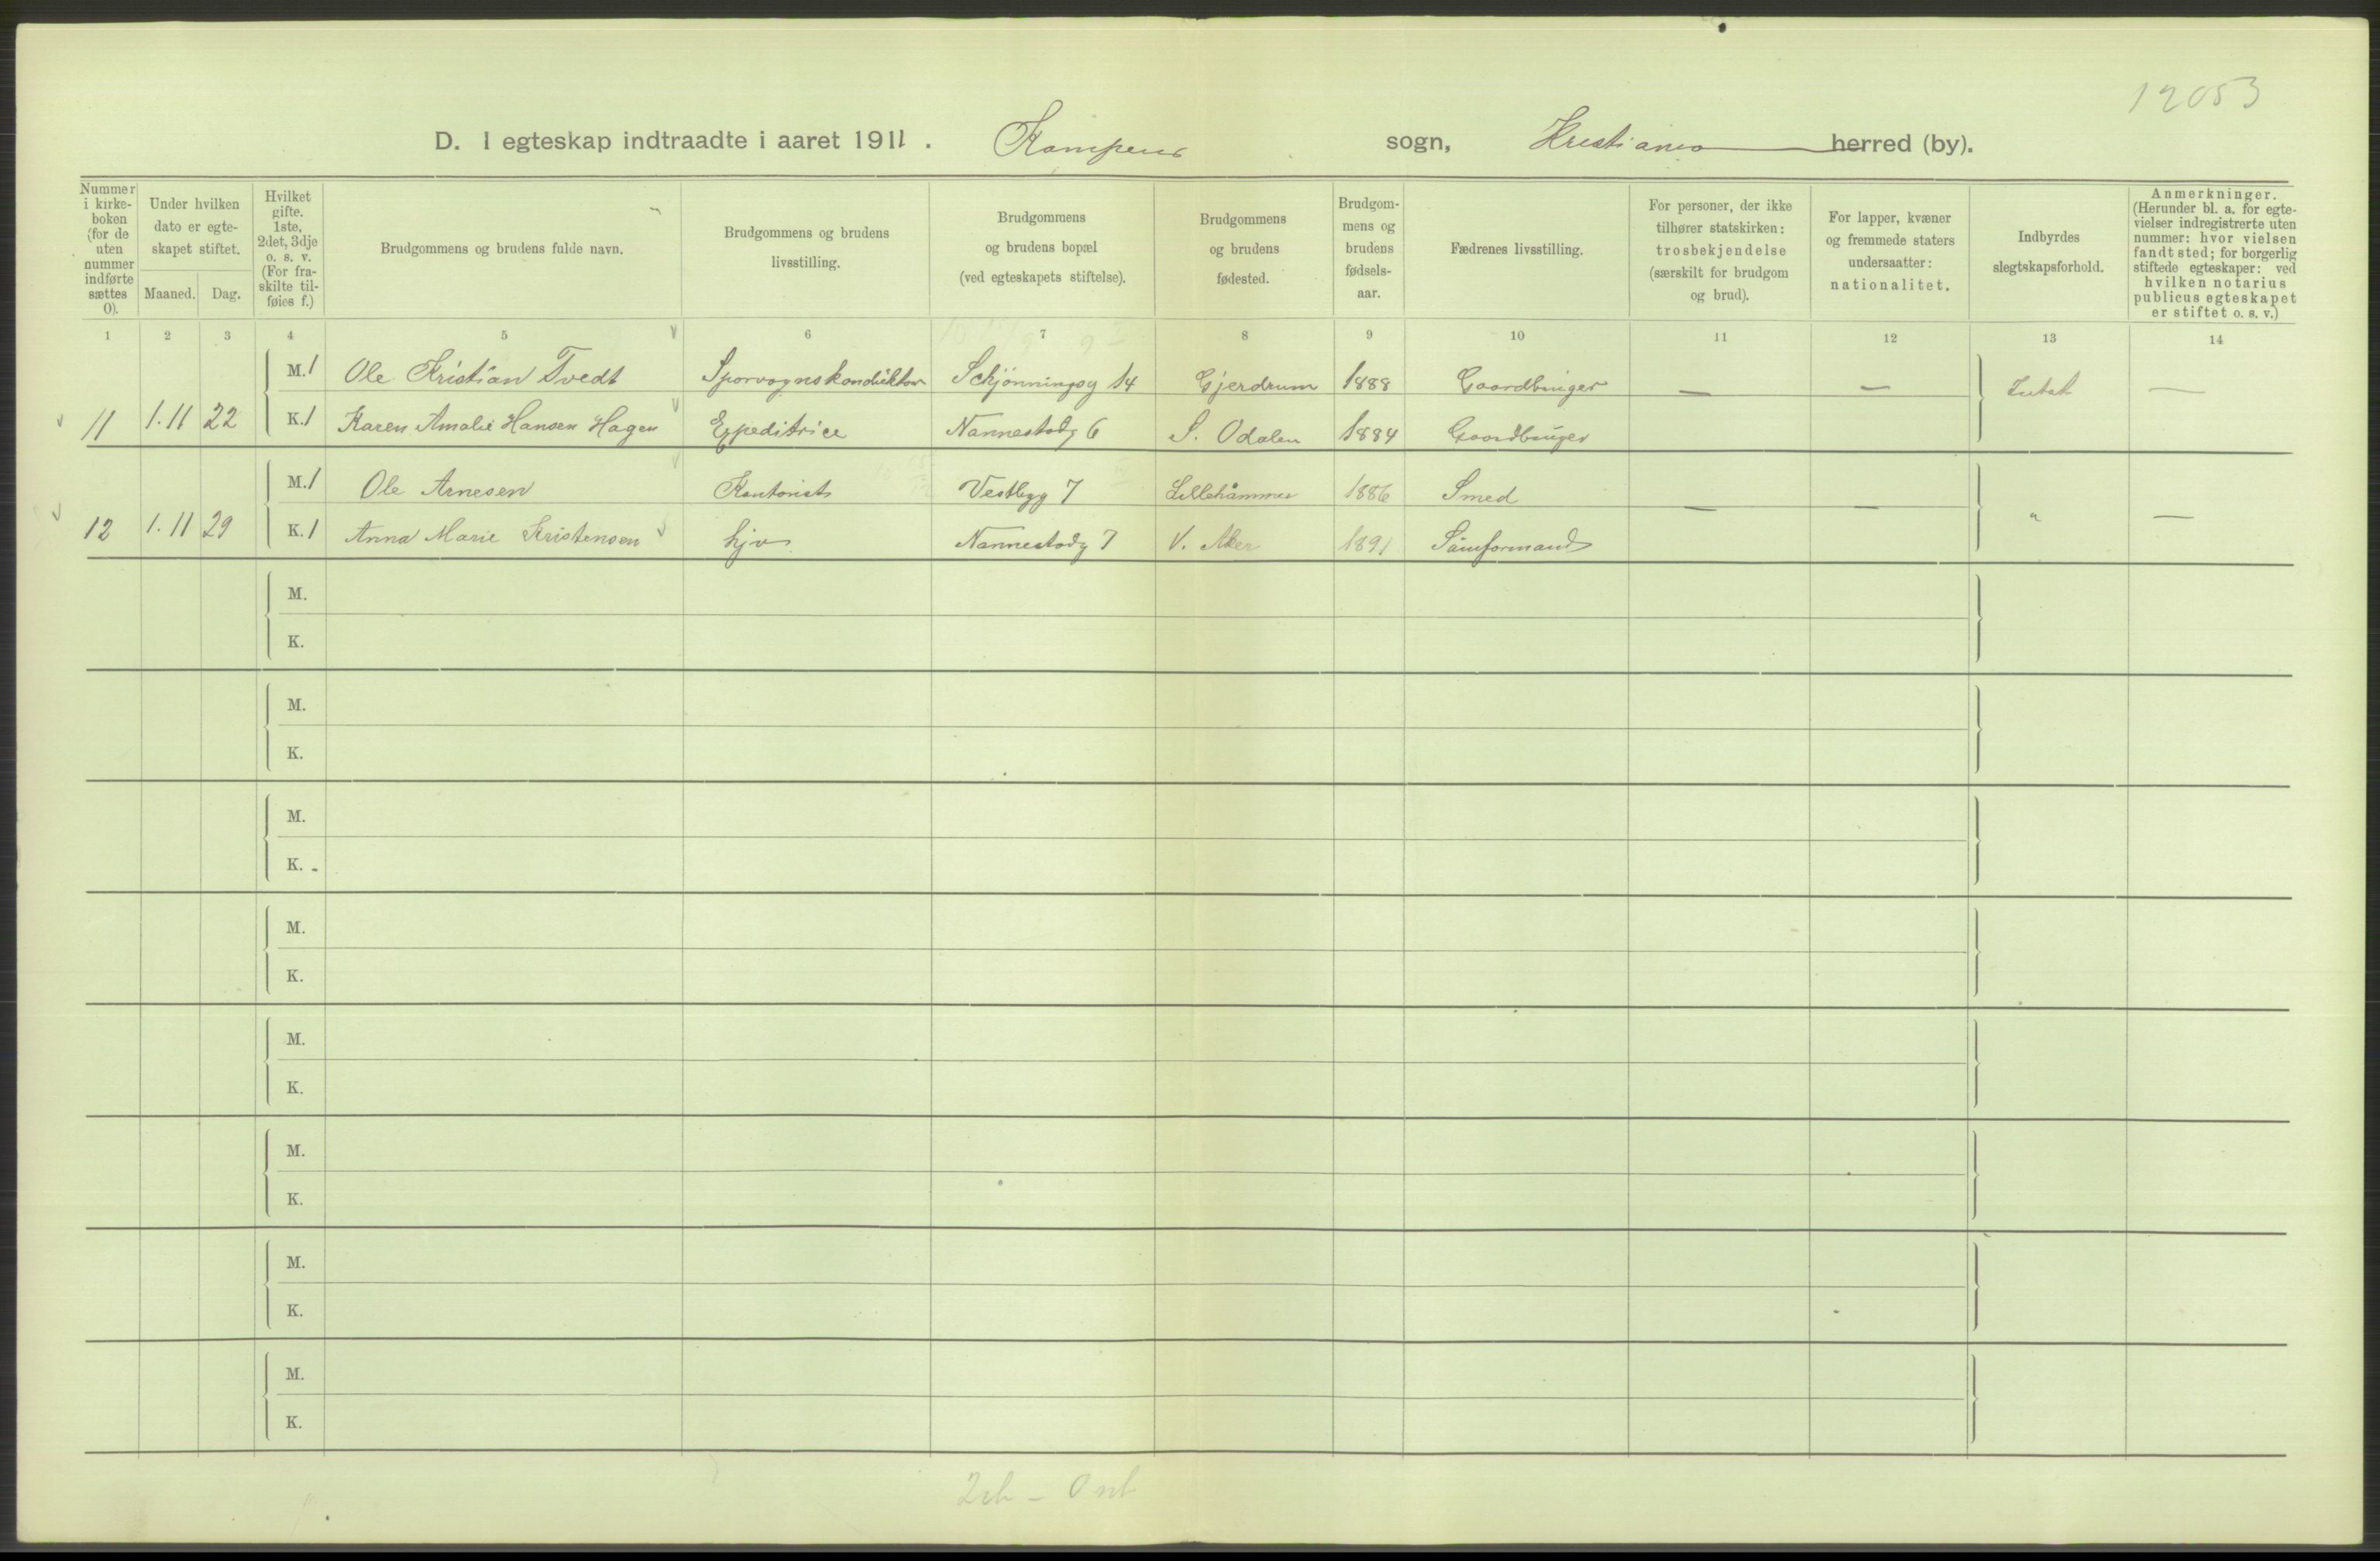 12053
D. I egteskap indtraadte i aaret 1911. Kampens sogn, Kristiania herred (by).
Nummer i kirkeboken (for de uten nummer indførte sættes 0).
Under hvilken dato er egteskapet stiftet.
Maaned. Dag.
Hvilket gifte. 1ste, 2det, 3dje o. s. v. (For fraskilte tilføies f.)
Brudgommens og brudens fulde navn.
Brudgommens og brudens livsstilling.
Brudgommens og brudens bopæl (ved egteskapets stiftelse).
Brudgommens og brudens fødested.
Brudgommens og brudens fødselsaar.
Fædrenes livsstilling.
For personer, der ikke tilhører statskirken: trosbekjendelse (særskilt for brudgom og brud).
For lapper, kvæner og fremmede staters undersaatter: nationalitet.
Indbyrdes slegtskapsforhold.
Anmerkninger. (Herunder bl. a. for egtevielser indregistrerte uten nummer: hvor vielsen fandt sted; for borgerlig stiftede egteskaper: ved hvilken notarius publicus egteskapet er stiftet o. s. v.)
1 2 3 4 5 6 7 8 9 10 11 12 13 14
M. 1 Ole Kristian Tvedt Sporvognskonduktør Schjønningsg 14 Gjerdrum 1888 Gaardbruger — — Intet —
11 1.11 22 K. 1 Karen Amalie Hansen Hagen Expeditrice Nannestadg 6 S. Odalen 1884 Gaardbruger
M. 1 Ole Arnesen Kontorist Vestbyg 7 Lillehammer 1886 Smed — — " —
12 1.11 29 K. 1 Anna Marie Kristensen hjv Nannestadg 7 V. Aker 1891
M.
K.
M.
K.
M.
K.
M.
K.
M.
K.
M.
K.
M.
K.
M.
K.